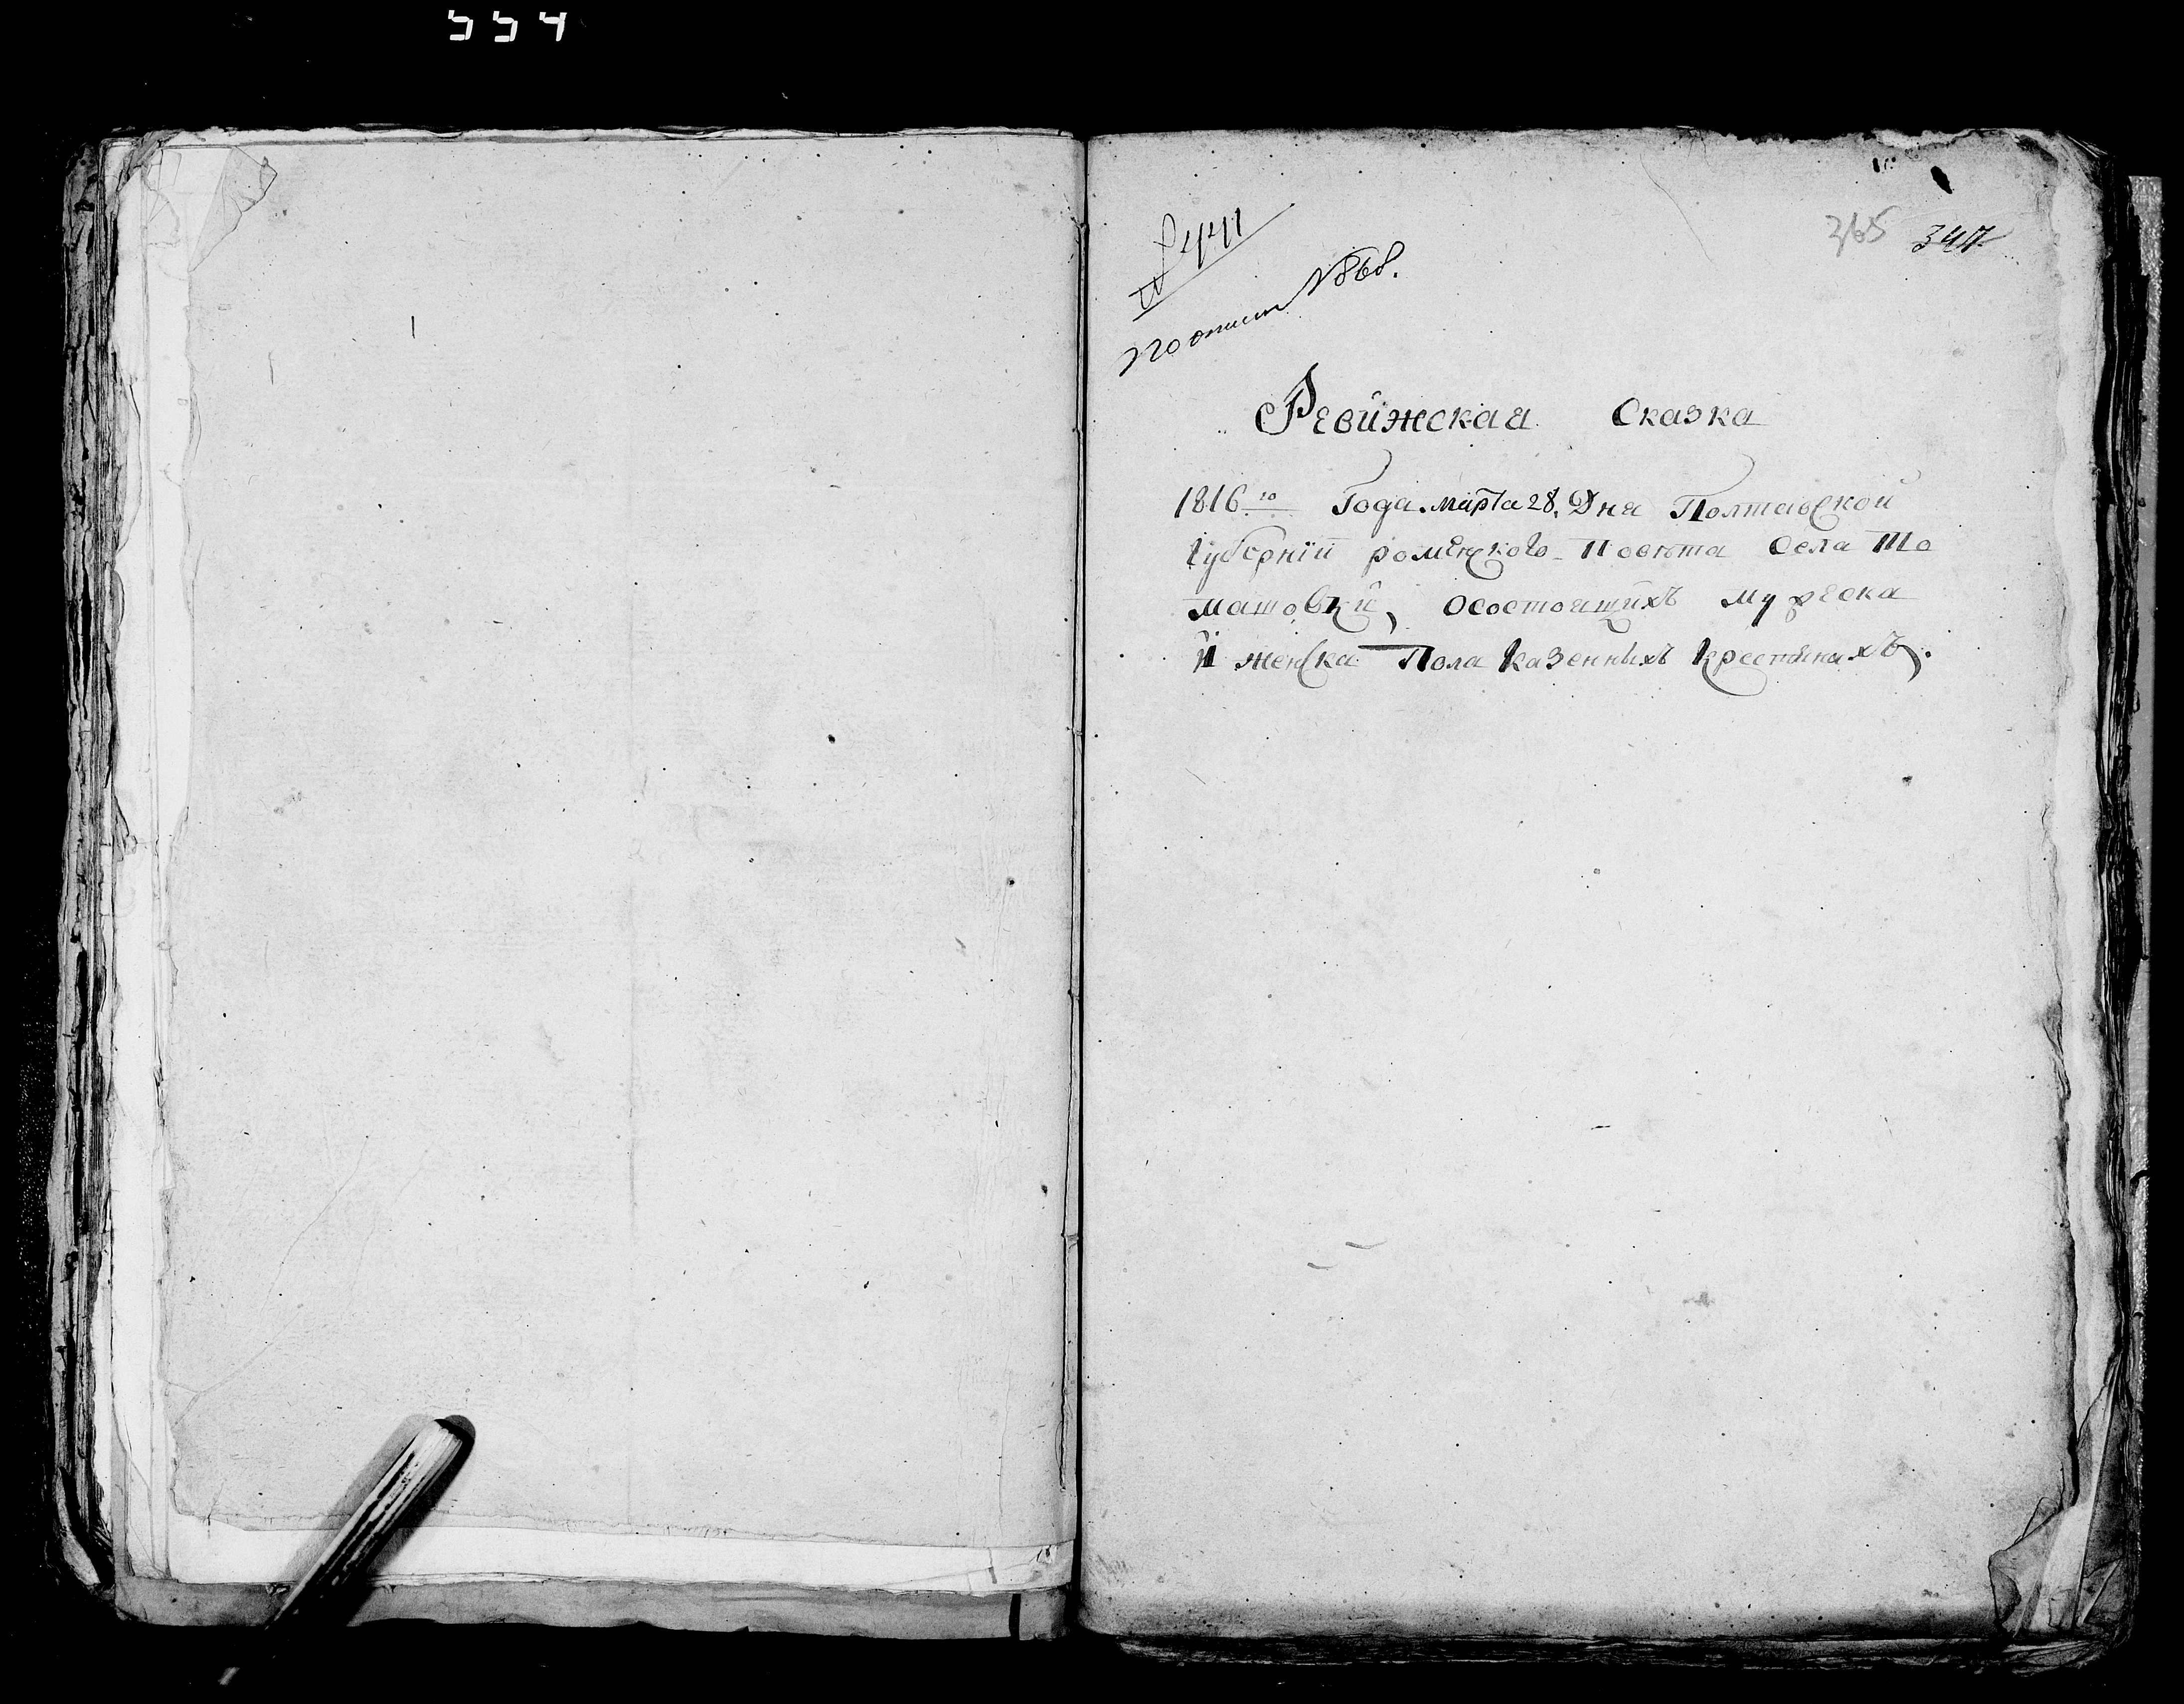 554
365 347
По описи №868.
Ревижская Сказка
1816го Года. Марта 28. Дня Полтавской
Губернїи роменского Повѣта Села То
машовки, Осостоящихъ мужеска
И женска Пола Казенныхъ крестянахъ.